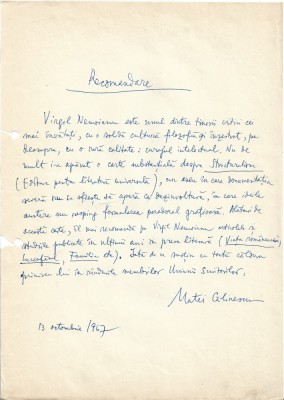 Recomandare
Virgil Nemoianu este unul dintre tinerii critici cei
mai învățați, cu o solidă cultură filozofică și înzestrat, pe
deasupra, cu o rară calitate: curajul intelectual. Nu de
mult i-a apărut o carte substanțială despre Structuralism
(Editura pentru literatură universală), un eseu în care documentația
severă nu se sfiește să apară cu dezinvoltură, în care ideile
austere nu resping formularea personal grațioasă. Alături de
această carte, îl mai recomandă pe Virgil Nemoianu articolele și
studiile publicate în ultimii ani în presa literară (Viața românească,
Luceafărul, Familia etc.). Iată de ce susțin cu toată căldura
primirea lui în rândurile membrilor Uniunii Scriitorilor.
Matei Călinescu
13 octombrie /1967